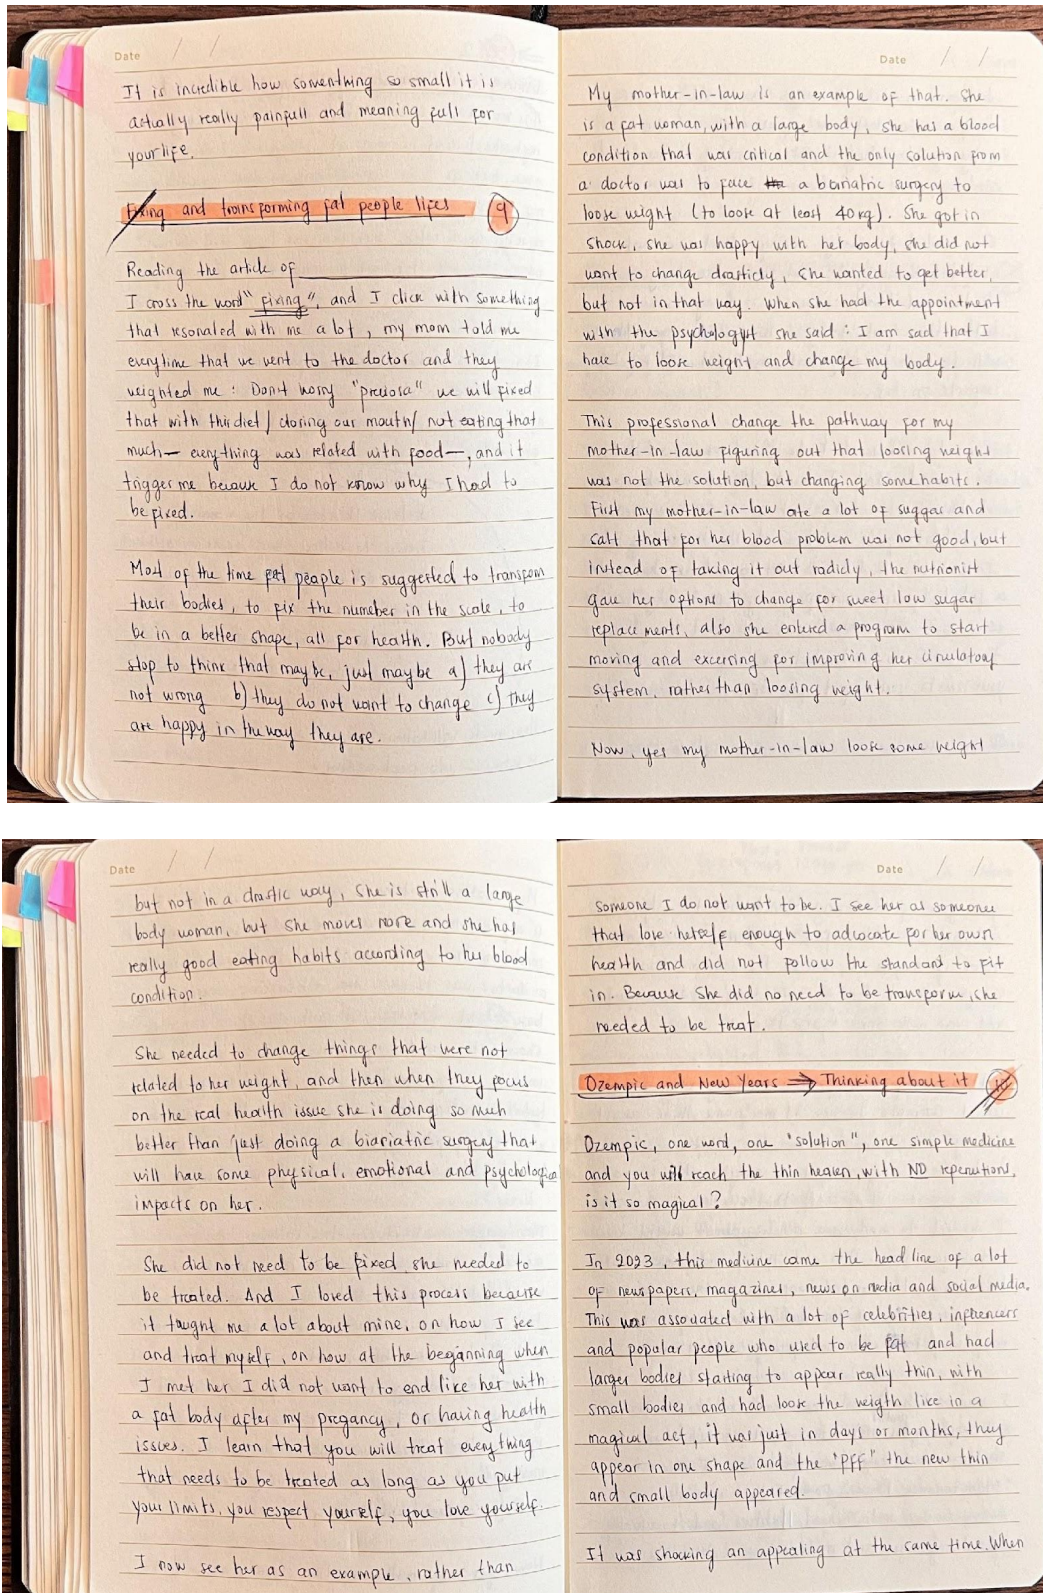 Date / /
It is incredible how somenthing so small it is
actually really painfull and meaning full for
your life.
Fixing and transforming fat people lifes 9
Reading the article of
I cross the word "fixing", and I click with something
that resonated with me a lot, my mom told me
everytime that we went to the doctor and they
weighted me: Don't worry "preciosa" we will fixed
that with this diet/ closing our mouth/ not eating that
much— everything was related with food—, and it
trigger me because I do not know why I had to
be fixed.
Most of the time fat people is suggested to transform
their bodies, to fix the number in the scale, to
be in a better shape, all for health. But nobody
stop to think that maybe, just maybe a) they are
not wrong b) they do not want to change c) They
are happy in the way they are.
Date / /
My mother-in-law is an example of that. She
is a fat woman, with a large body, she has a blood
condition that was critical and the only solution from
a doctor was to face the a bariatric surgery to
loose weight (to loose at least 40kg). She got in
shock, she was happy with her body, she did not
want to change drasticly, she wanted to get better,
but not in that way. When she had the appointment
with the psychologyst she said: I am sad that I
have to loose weight and change my body.
This professional change the pathway for my
mother-in-law figuring out that loosing weight
was not the solution, but changing some habits.
First my mother-in-law ate a lot of suggar and
salt that for her blood problem was not good, but
instead of taking it out radicly, the nutrionist
gave her options to change for sweet low sugar
replacements, also she entered a program to start
moving and excersing for improving her circulatory
system, rather than loosing weight.
Now, yes my mother-in-law loose some weight
Date / /
but not in a drastic way, she is still a large
body woman, but she moves more and she has
really good eating habits according to her blood
condition.
She needed to change things that were not
related to her weight, and then when they focus
on the real health issue she is doing so much
better than just doing a biariatric surgery that
will have some physical, emotional and psychological
impacts on her.
She did not need to be fixed, she needed to
be treated. And I loved this process because
it taught me a lot about mine, on how I see
and treat myself, on how at the beganning when
I met her I did not want to end like her with
a fat body after my pregancy, or having health
issues. I learn that you will treat everything
that needs to be treated as long as you put
your limits, you respect yourself, you love yourself.
I now see her as an example, rather than
Date / /
someone I do not want to be. I see her as someone
that love herself enough to advocate for her own
health and did not follow the standard to fit
in. Because she did no need to be transform, she
needed to be treat.
Ozempic and New Years ⇒ Thinking about it
Ozempic, one word, one "solution", one simple medicine
and you will reach the thin heaven, with NO repercutions,
is it so magical?
In 2023, this medicine came the head line of a lot
of newspapers, magazines, news on media and social media.
This was associated with a lot of celebrities, influencers
and popular people who used to be fat and had
larger bodies starting to appear really thin, with
small bodies and had loose the weigth like in a
magical act, it was just in days or months, they
appear in one shape and the "PFF" the new thin
and small body appeared.
It was shocking an appealing at the same time. When